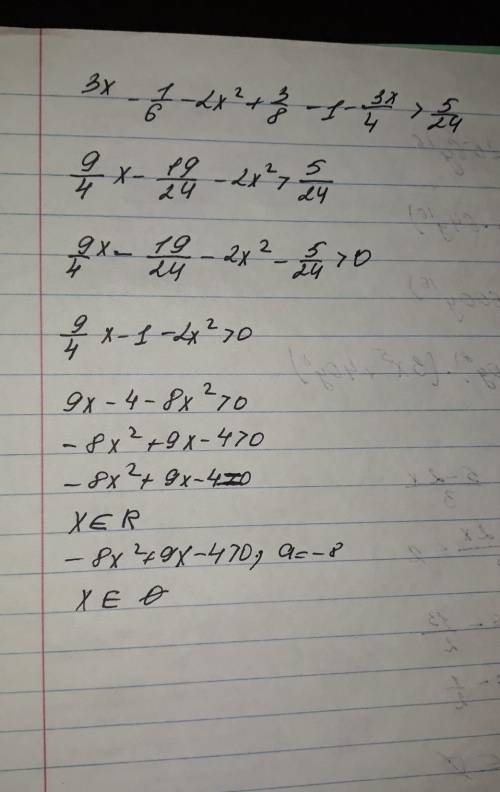 3x - 1/6 - 2x² + 3/8 - 1 - 3x/4 > 5/24
9/4 x - 19/24 - 2x² > 5/24
9/4 x - 19/24 - 2x² - 5/24 > 0
9/4 x - 1 - 2x² > 0
9x - 4 - 8x² > 0
- 8x² + 9x - 4 > 0
- 8x² + 9x - 4 = 0
x ∈ R
- 8x² + 9x - 4 > 0, a = -8
x ∈ ∅